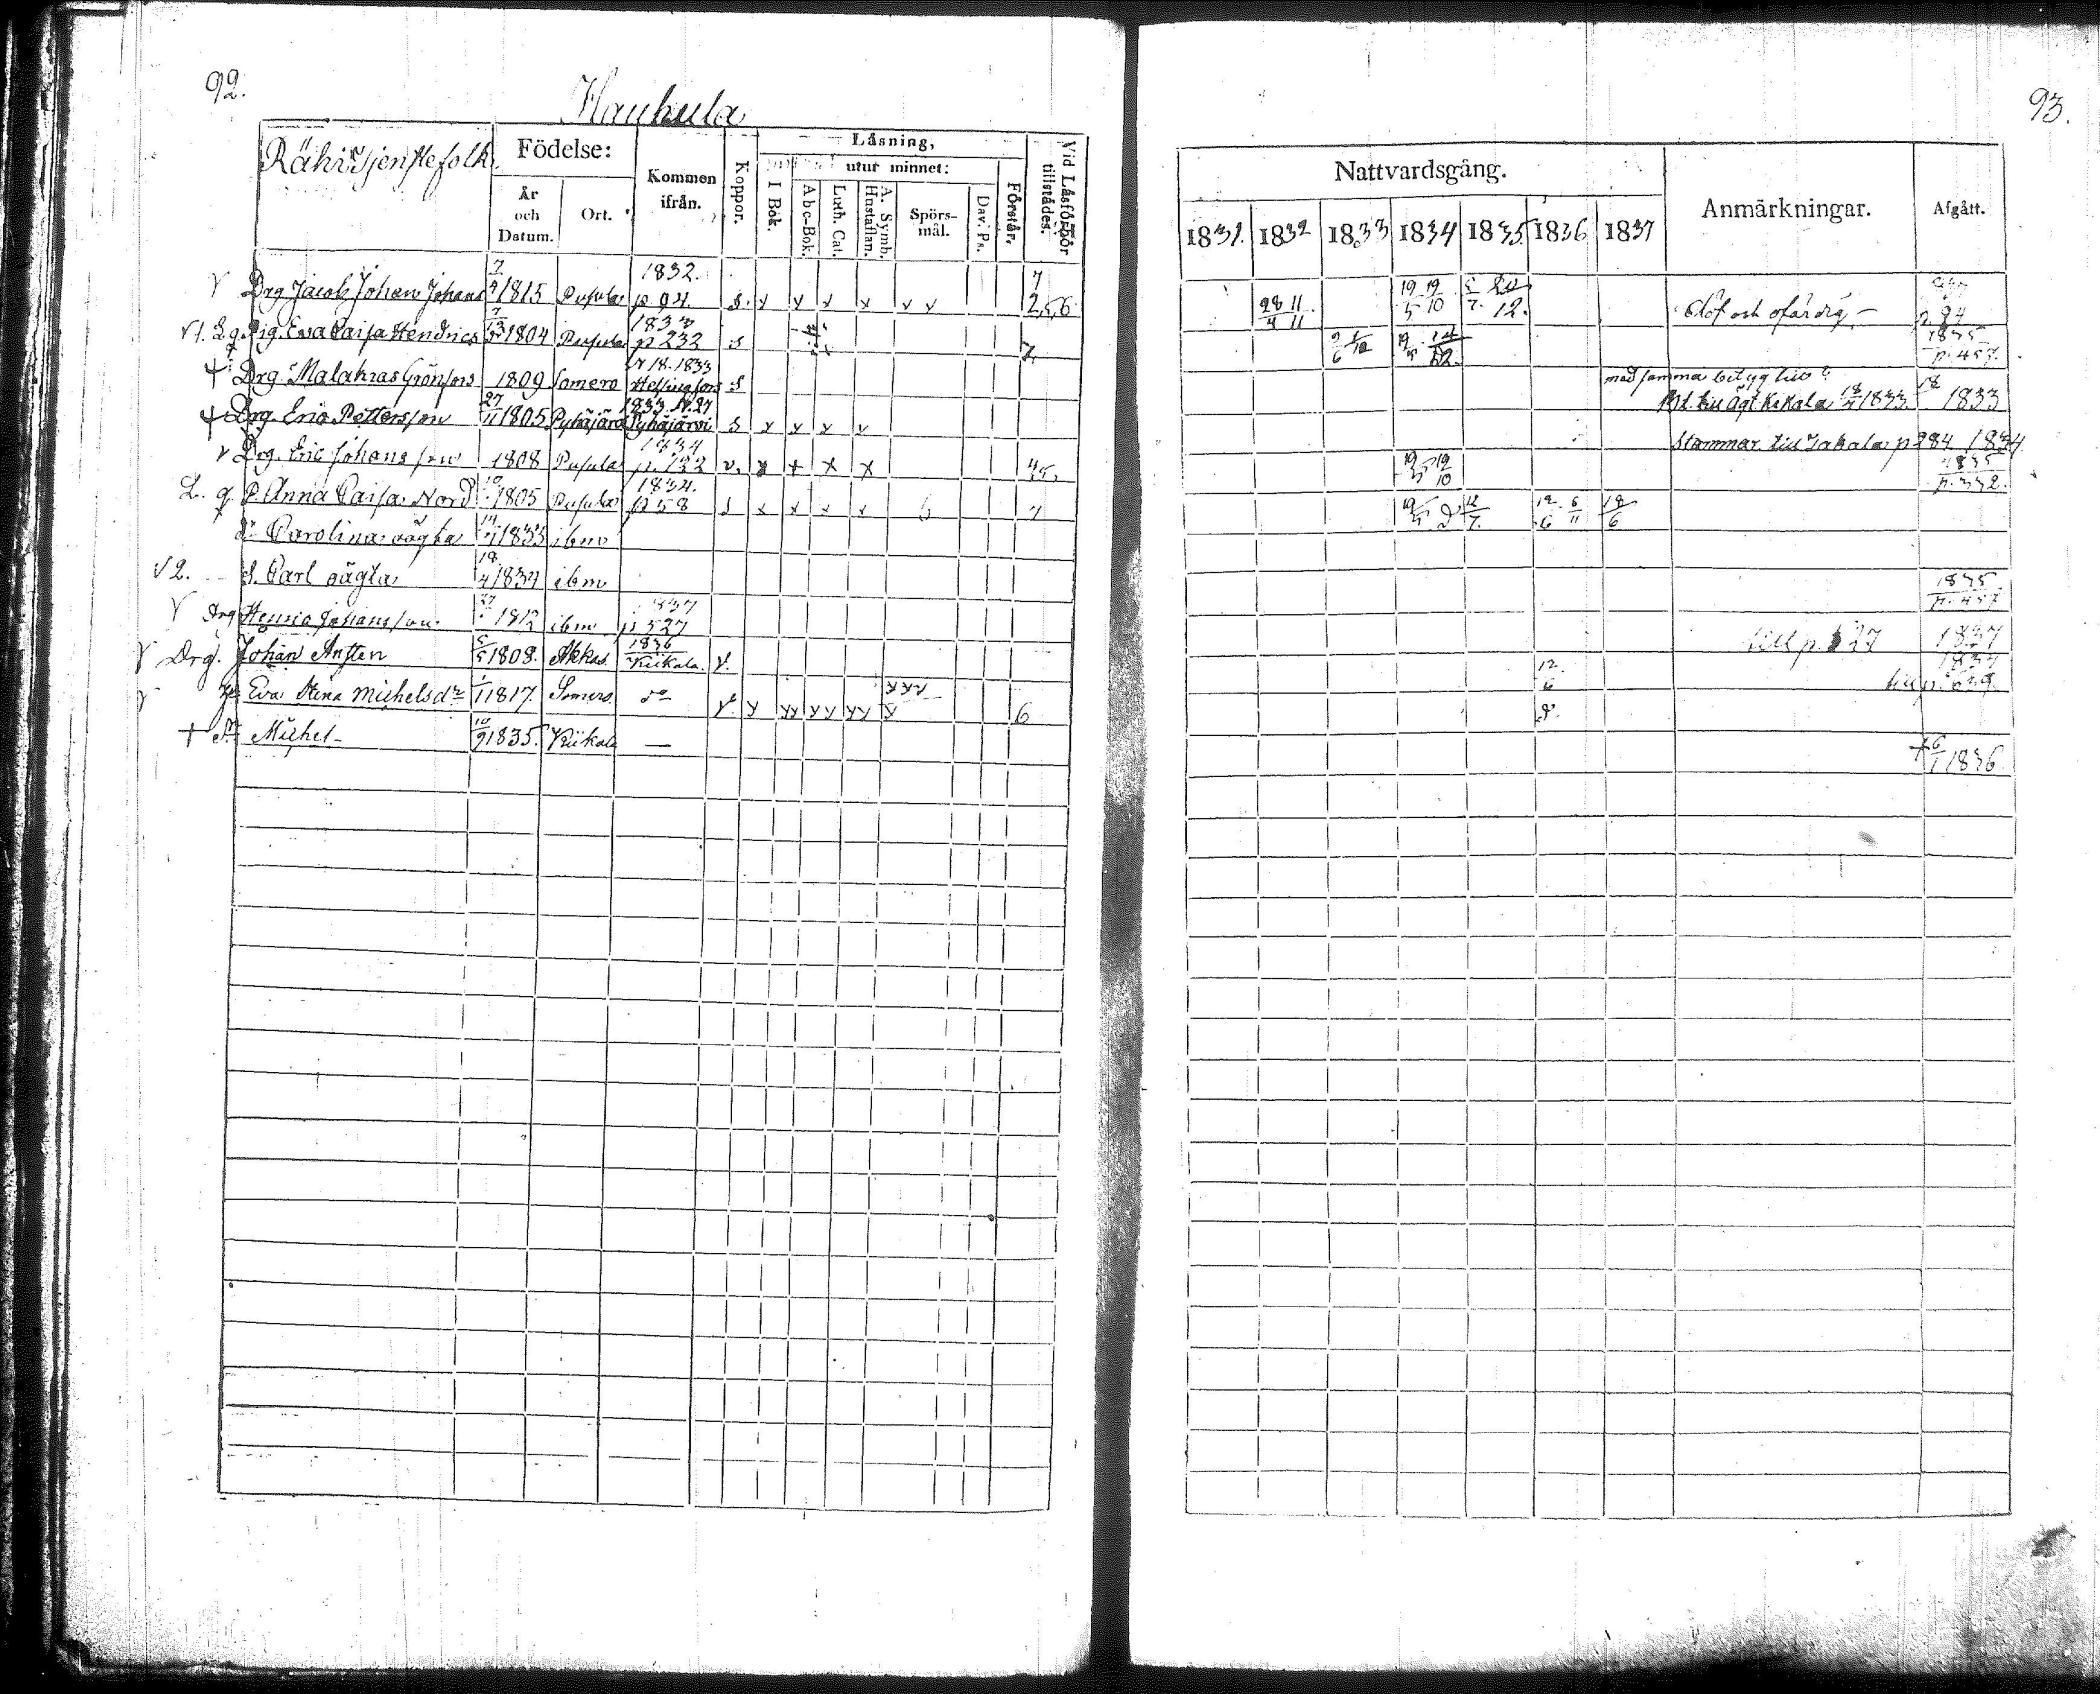 92.
Haukula
Rähis Tjenstefolk.
Födelse:
År och Datum.
Ort.
Kommen ifrån.
Koppor.
Läsning,
I Bok.
utur minnet:
Abc-Bok.
Luth. Cat.
A. Symb. Hustaflan.
Spörsmål.
Dav. Ps.
Förstår.
Vid Läsförhör tillstädes.
Drg Jacob Johan Johans 1815 Pusula 1832. p. 94. s. x x x x x x 7 2,5,6
Pig. Eva Caisa Hendrics 1804 Pusula p 232 s 7
Drg. Malakias Grönfors 1809 Somero N 18. 1833 Helsingfors s
Drg. Eric Pettersson 27/11 1805 Pyhäjärvi 1833 N. 27 Pyhäjärvi s x x x x
v Drg. Eric Johansson 1808 Pusula 1834 p. 122 v. x x x x 4,5,
L. g. P. Anna Caisa Nord 1805 Pusula 1834. p 58 s x x x x 6 7
Dr. Carolina oägta 1833 ibm
v 2. S. Carl oägta 18/4 1834 ibm
v Drg Henric Johansson 1812 ibm p 527
v Drg. Johan Ansten 5/5 1808. Akkas 1836 Kiikala. v.
v Hu Eva Stina Michelsdr 1/1 1817. Somero do v. x xx xx xx xxx x 6
+ Sn Michel 10/9 1835. Kiikala —
93.
Nattvardsgång.
1831. 1832 1833 1834 1835 1836 1837
Anmärkningar.
Afgått.
28/4 11/11 19/5 19/10 5/7. 12. Döf och ofärdig – p. 94
1835 p. 457.
med samma betyg till
18/7 1833. 1833
Stammar till Sakala p 284 1834
19/5 19/10 1835 p. 332.
19/5 12/7. 12/6 6/11 18/6
1835 p. 457
till p. 527 1837
12/6 1837 till p.
+ 6/1 1836